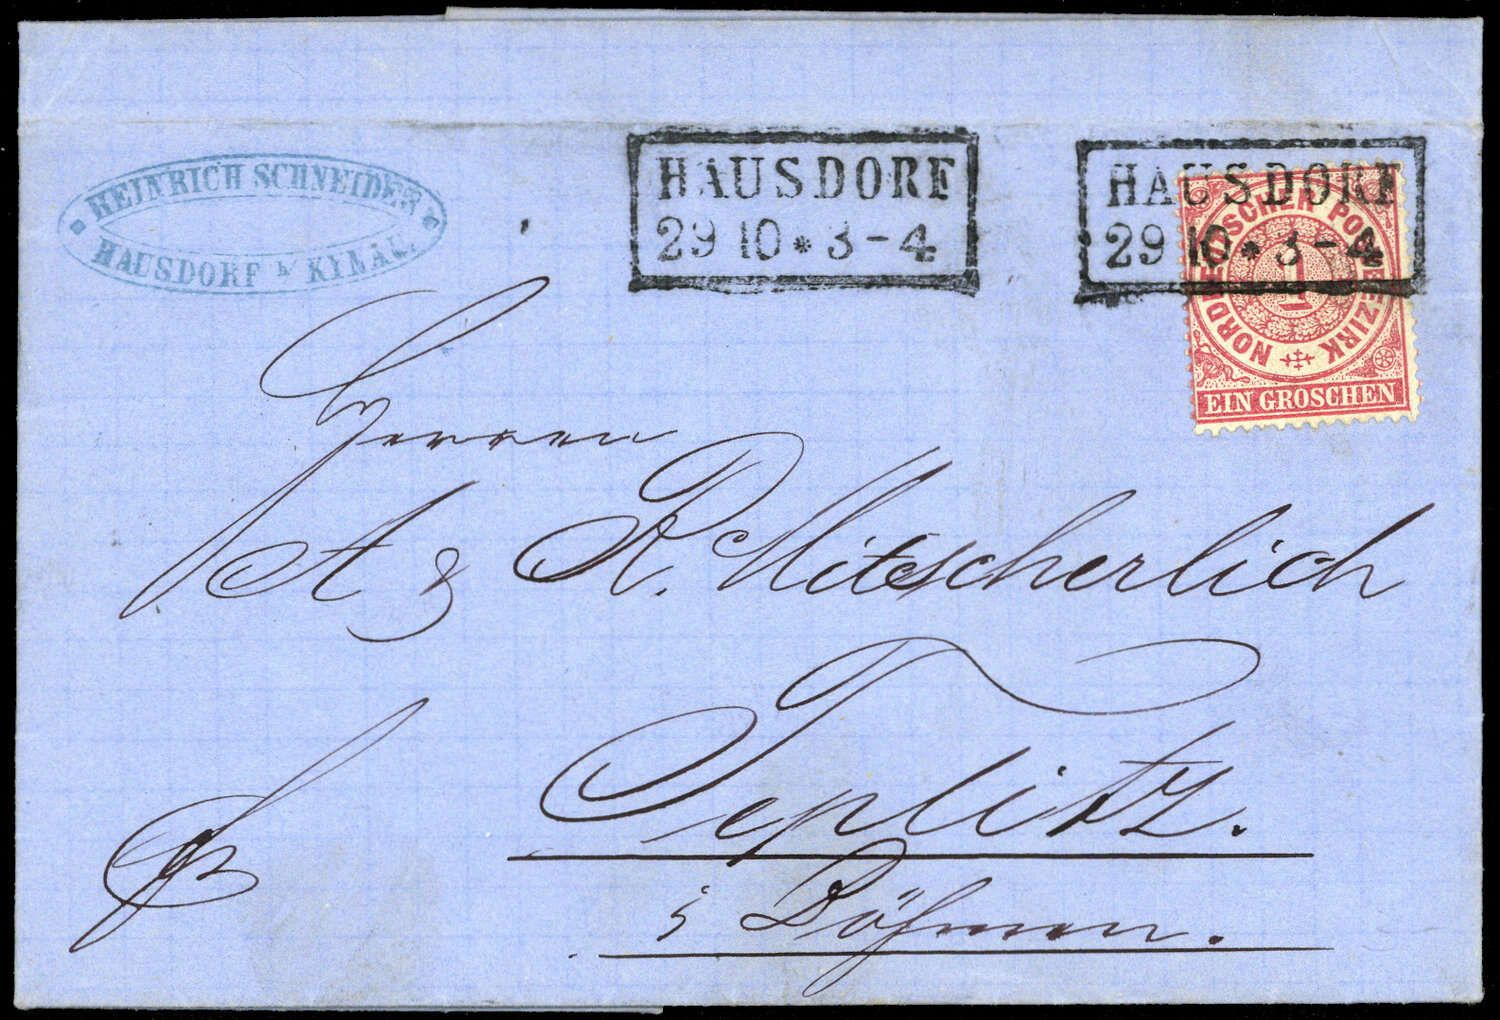 HEINRICH SCHNEIDER
HAUSDORF b/ KYNAU.
HAUSDORF
29 10 * 3 - 4
HAUSDORF
29 10 * 3 - 4
NORDDEUTSCHER POSTBEZIRK
1
EIN GROSCHEN
Herren
A & R. Mitscherlich
Teplitz.
i Böhmen.